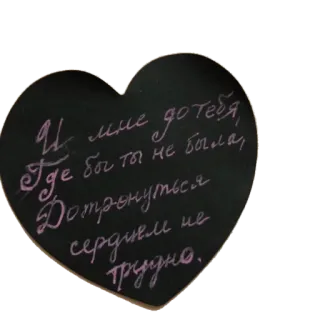 И мне до тебя,
Где бы ты не была,
Дотронуться
сердцем не
трудно.